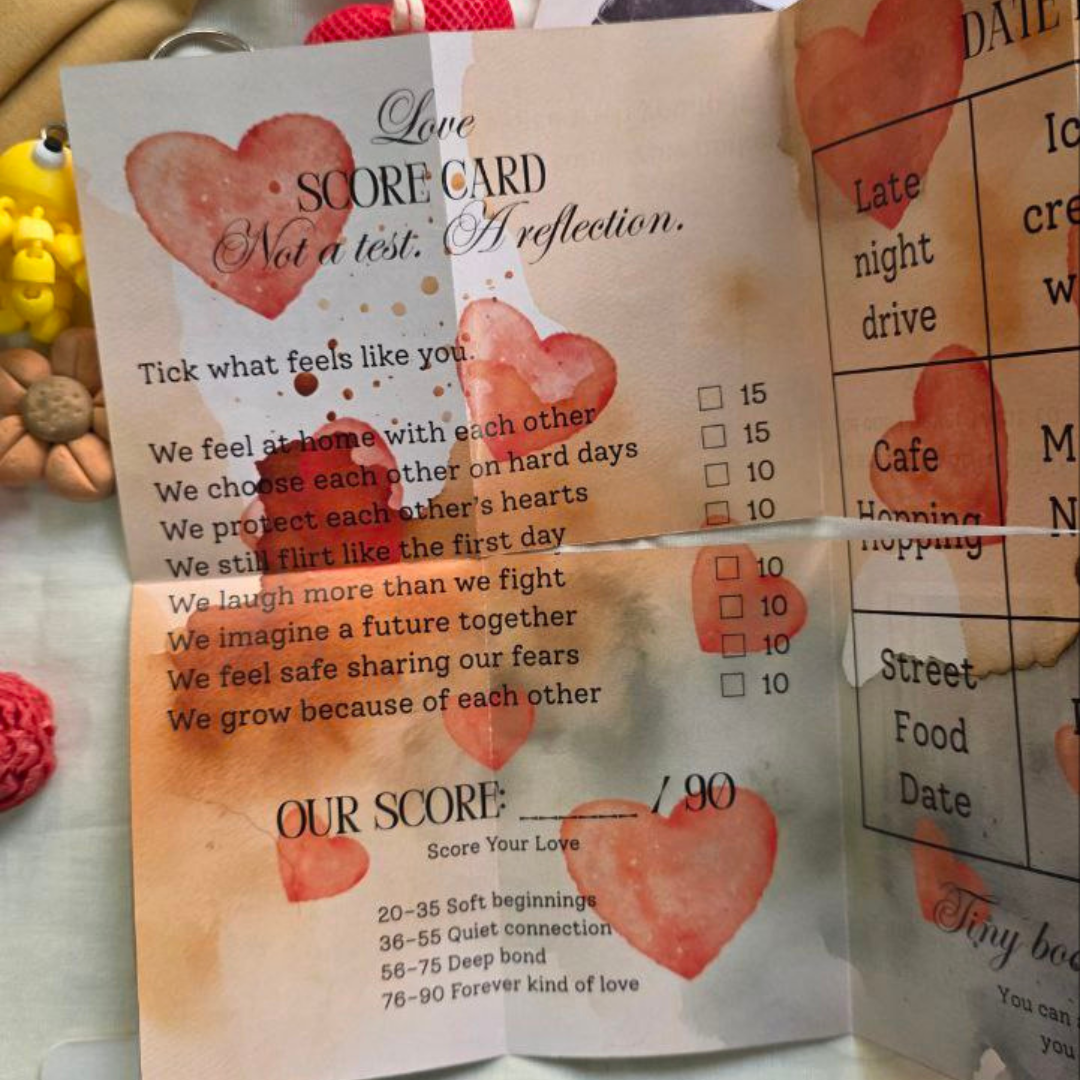 Love
SCORE CARD
Not a test. A reflection.
Tick what feels like you.
We feel at home with each other 15
We choose each other on hard days 15
We protect each other's hearts 10
We still flirt like the first day 10
We laugh more than we fight 10
We imagine a future together 10
We feel safe sharing our fears 10
We grow because of each other 10
OUR SCORE: ______ / 90
Score Your Love
20-35 Soft beginnings
36-55 Quiet connection
56-75 Deep bond
76-90 Forever kind of love
DATE
Late
night
drive
Cafe
Hopping
Street
Food
Date
Tiny
You can
you